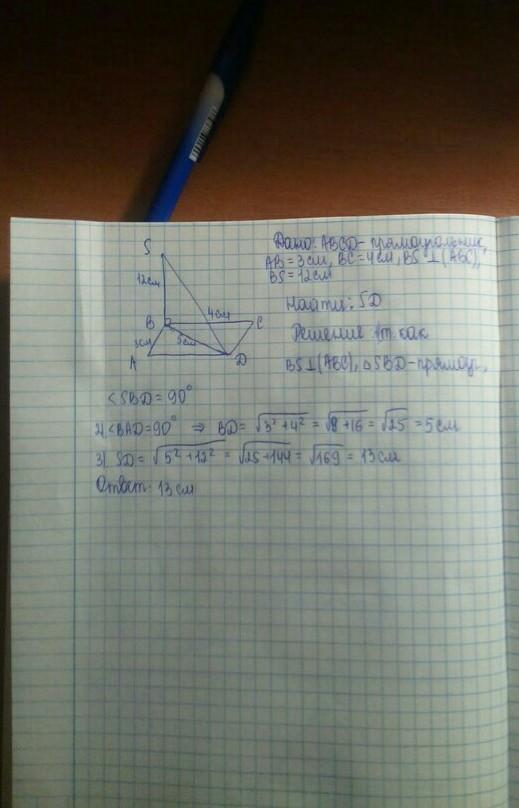 S
12см
B
4см
C
3см
5см
A
D
Дано: ABCD- прямоугольник,
AB = 3см, BC = 4см, BS ⊥ (ABC),
BS = 12см
Найти: SD
Решение 1)т. как
BS⊥(ABC), △SBD-прямоуг,
<SBD = 90°
2) <BAD=90° ⇒ BD = √3²+4² = √9+16 = √25 = 5см
3) SD = √5²+12² = √25+144 = √169 = 13см
Ответ: 13см